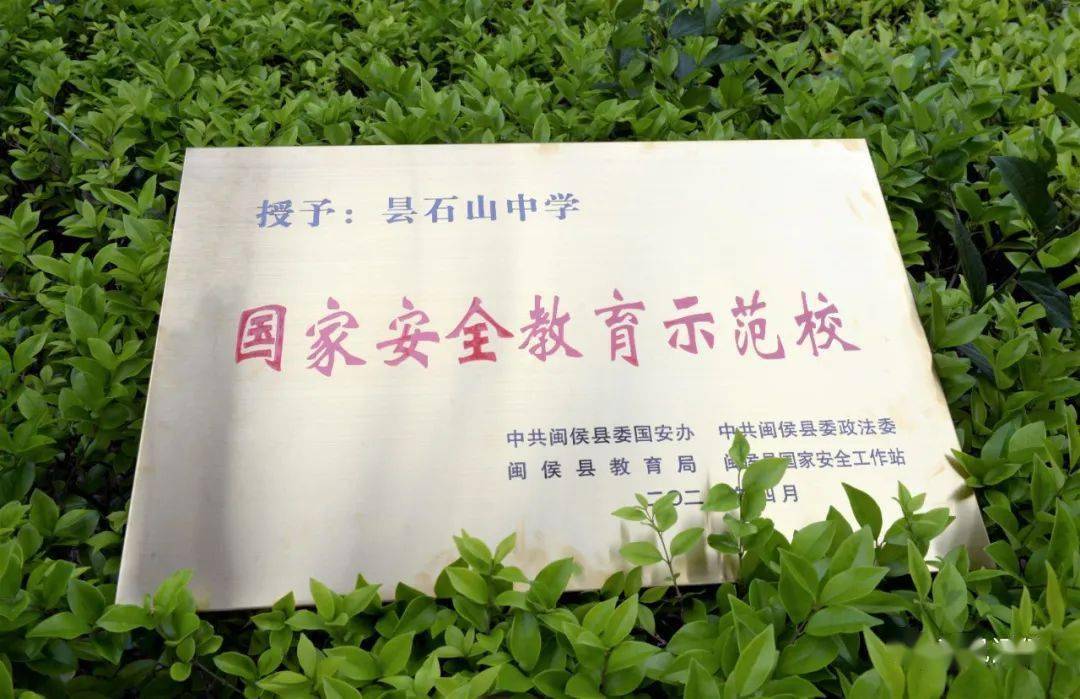 授予：昙石山中学
国家安全教育示范校
中共闽侯县委国安办 中共闽侯县委政法委
闽侯县教育局 闽侯县国家安全工作站
二〇二 四月